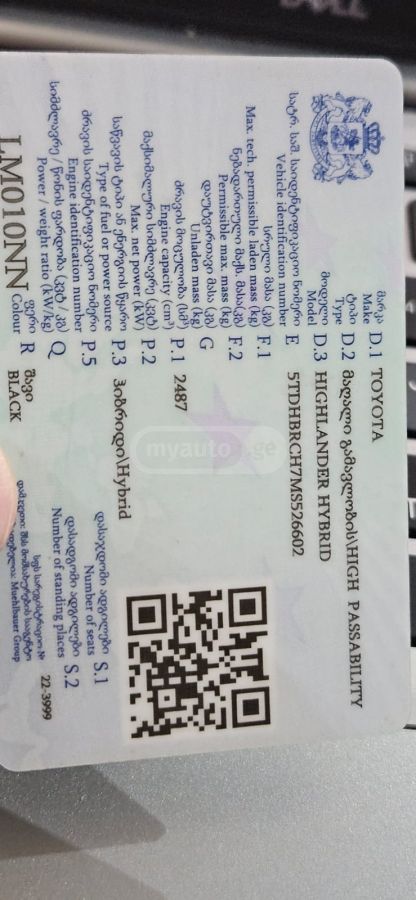 DELL
მარკა
Make D.1 TOYOTA
ტიპი
Type D.2 მაღალი გამავლობის\HIGH PASSABILITY
მოდელი
Model D.3 HIGHLANDER HYBRID
სატრ. საშ. საიდენტიფიკაციო ნომერი
Vehicle identification number E 5TDHBRCH7MS526602
სრული მასა (კგ)
Max. tech. permissible laden mass (kg) F.1
ნებადართული მაქს. მასა(კგ)
Permissible max. mass (kg) F.2
დაუტვირთავი მასა (კგ)
Unladen mass (kg) G
ძრავის მოცულობა (სმ³)
Engine capacity (cm³) P.1 2487
მაქსიმალური სიმძლავრე (კვტ)
Max. net power (kW) P.2
საწვავის ტიპი ან ენერგიის წყარო
Type of fuel or power source P.3 ჰიბრიდი\Hybrid
ძრავის საიდენტიფიკაციო ნომერი
Engine identification number P.5
სიმძლავრე / წონის ფარდობა (კვტ / კგ)
Power / weight ratio (kW/kg) Q
ფერი
Colour R შავი
BLACK
დასაჯდომი ადგილები
Number of seats S.1
დასადგომი ადგილები
Number of standing places S.2
LM010NN
22-3999
myauto.ge